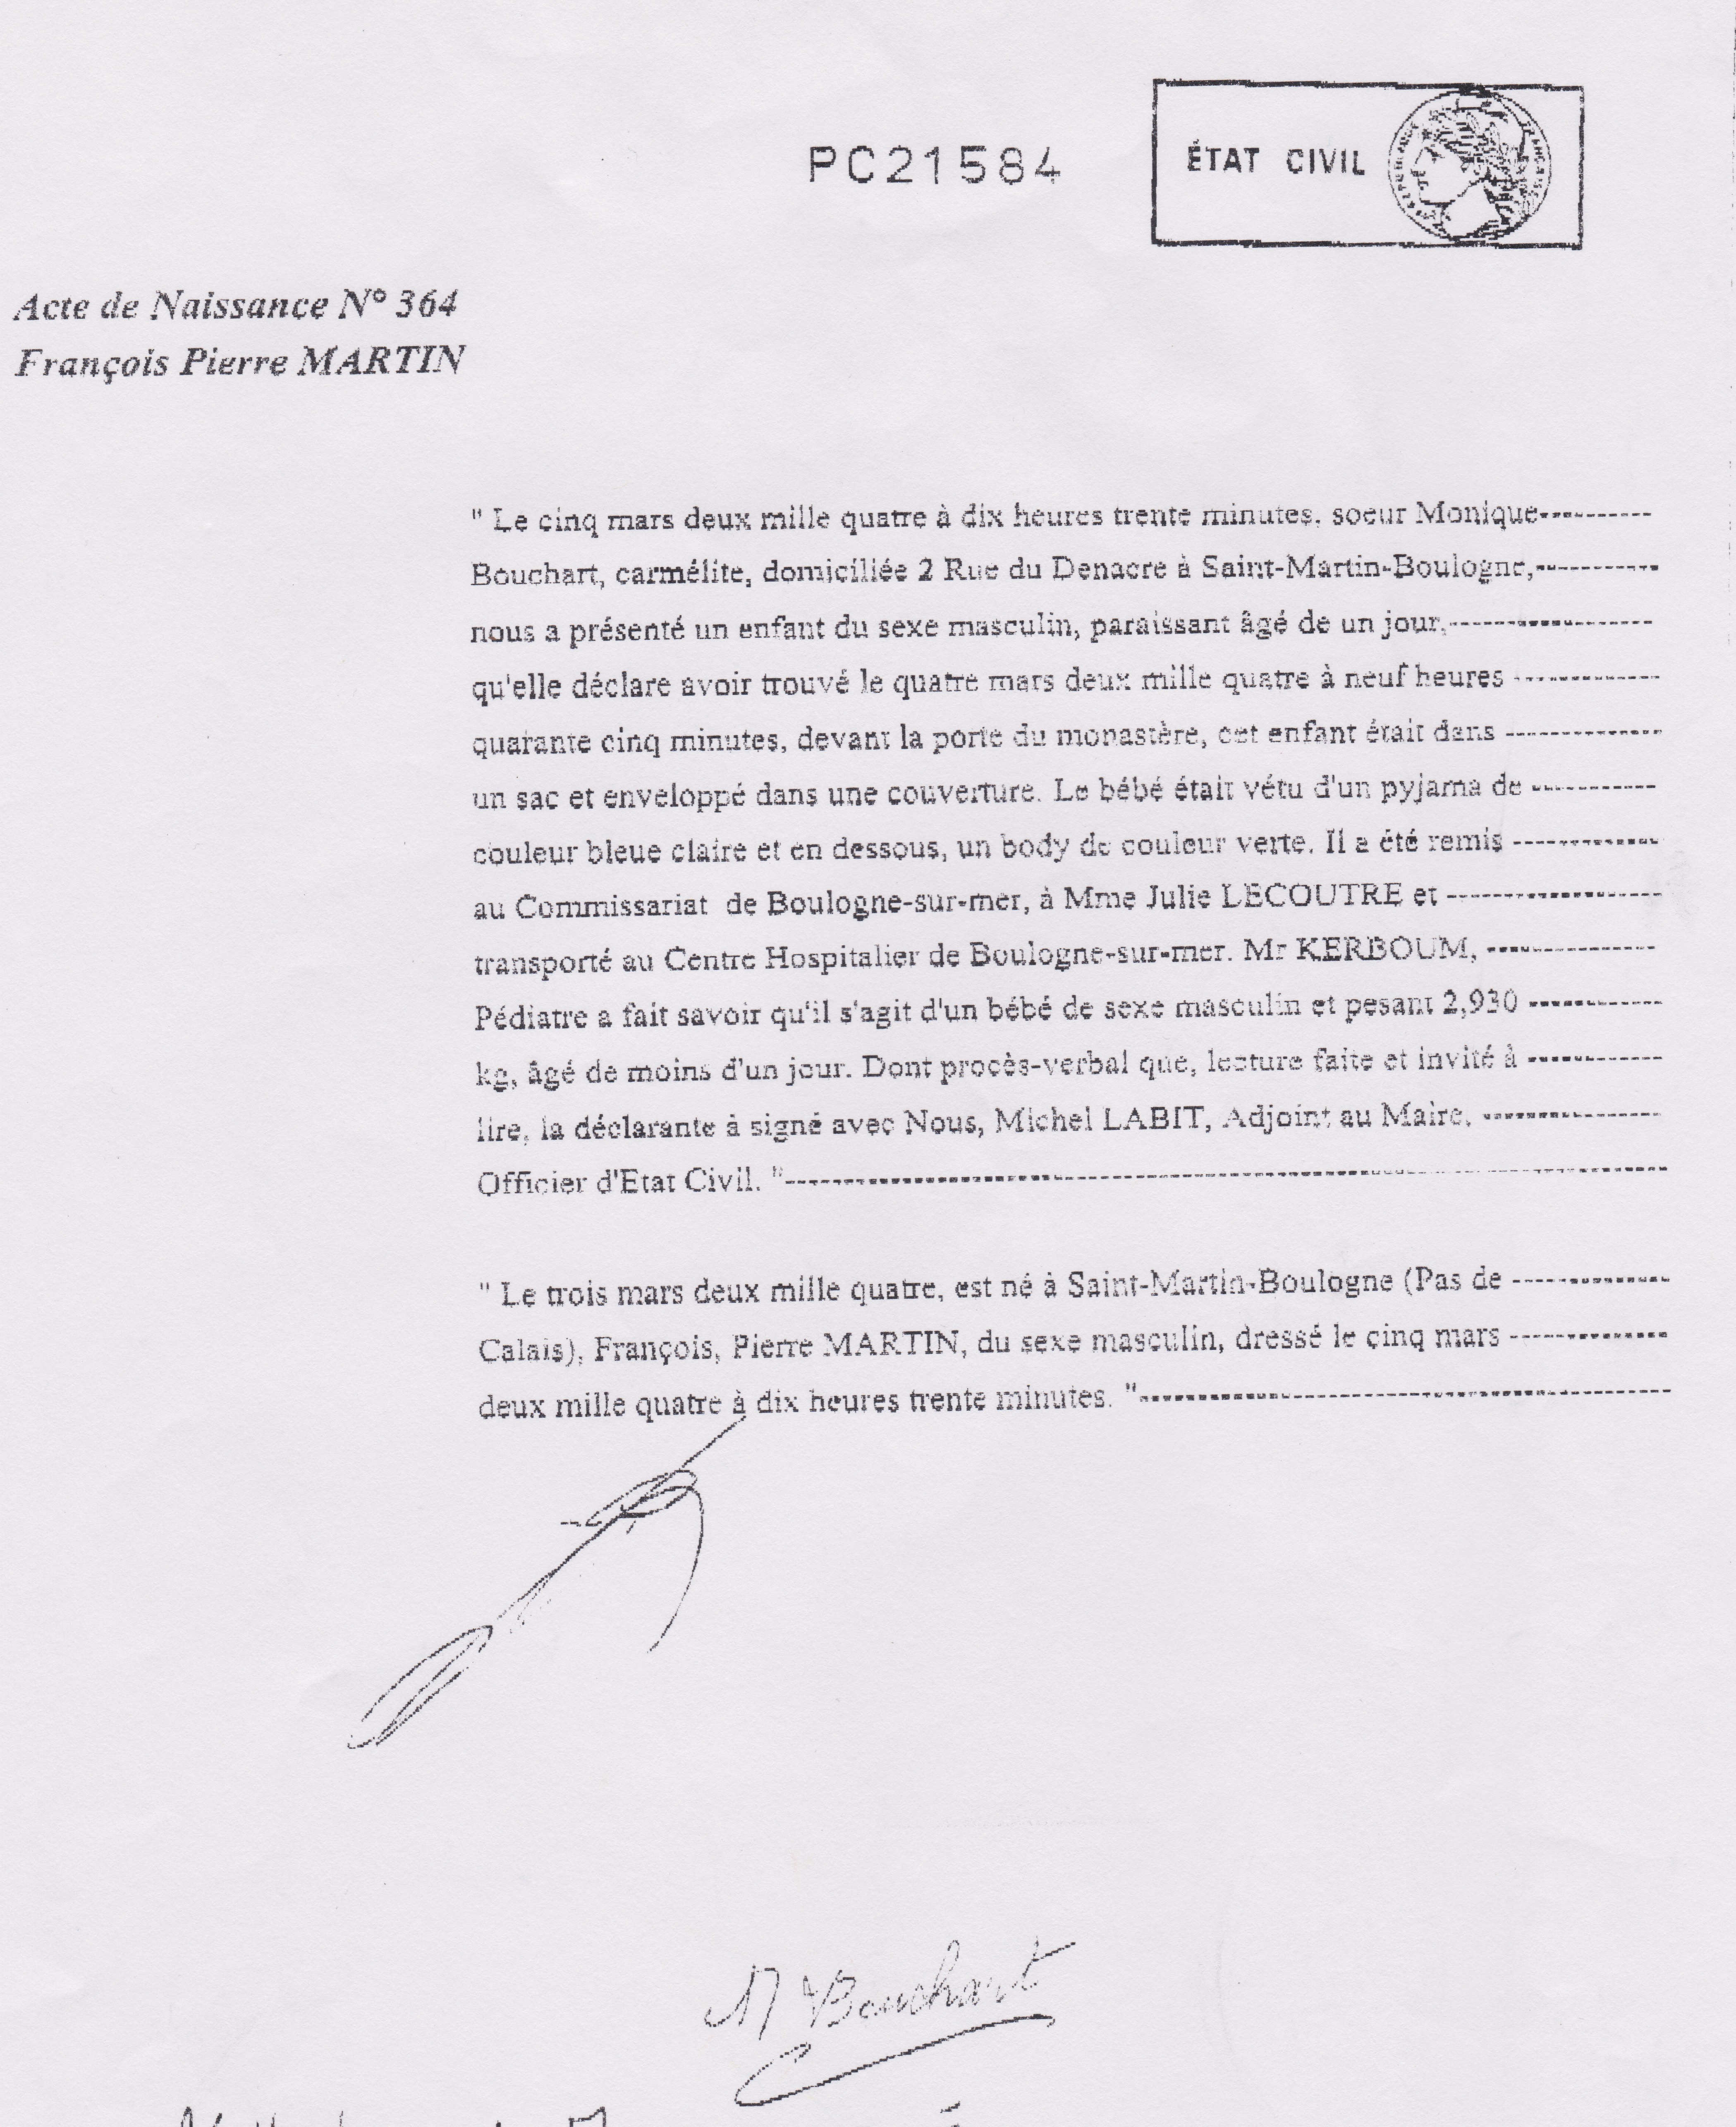 PC21584
ÉTAT CIVIL
Acte de Naissance N° 364
François Pierre MARTIN
" Le cinq mars deux mille quatre à dix heures trente minutes, soeur Monique----------
Bouchart, carmélite, domiciliée 2 Rue du Denacre à Saint-Martin-Boulogne,-----------
nous a présenté un enfant du sexe masculin, paraissant âgé de un jour,------------------
qu'elle déclare avoir trouvé le quatre mars deux mille quatre à neuf heures -------------
quarante cinq minutes, devant la porte du monastère, cet enfant était dans --------------
un sac et enveloppé dans une couverture. Le bébé était vétu d'un pyjama de -----------
couleur bleue claire et en dessous, un body de couleur verte. Il a été remis -------------
au Commissariat de Boulogne-sur-mer, à Mme Julie LECOUTRE et -------------------
transporté au Centre Hospitalier de Boulogne-sur-mer. Mr KERBOUM, ---------------
Pédiatre a fait savoir qu'il s'agit d'un bébé de sexe masculin et pesant 2,930 ------------
kg, âgé de moins d'un jour. Dont procès-verbal que, lecture faite et invité à ------------
lire, la déclarante à signé avec Nous, Michel LABIT, Adjoint au Maire, ----------------
Officier d'Etat Civil. "--------------------------------------------------------------------------------
" Le trois mars deux mille quatre, est né à Saint-Martin-Boulogne (Pas de --------------
Calais), François, Pierre MARTIN, du sexe masculin, dressé le cinq mars --------------
deux mille quatre à dix heures trente minutes. "------------------------------------------------
M Bouchart